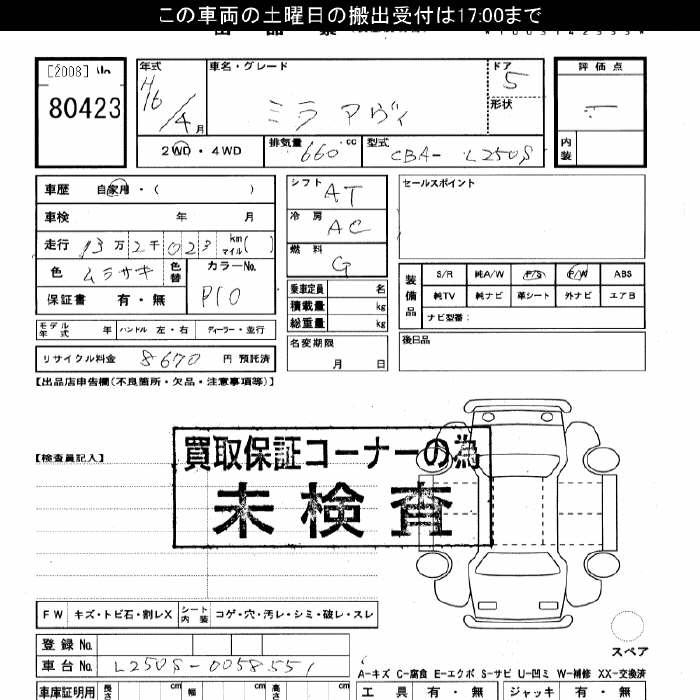 この車両の土曜日の搬出受付は17:00まで
[2008]
80423
年式 車名・グレード ドア 評価点
H16/4月 ミラ アヴィ 5
形状
2WD・4WD 排気量 660 cc 型式 CBA- L250S 内装
車歴 自家用・( )
車検 年 月
走行 13万2千023 km マイル( )
色 ムラサキ 色替 カラーNo. P10
保証書 有・無
シフト AT
冷房 AC
燃料 G
セールスポイント
乗車定員 名
積載量 kg
総重量 kg
装備品 S/R 純A/W P/S P/W ABS
純TV 純ナビ 革シート 外ナビ エアB
ナビ型番:
モデル年式 年 ハンドル 左・右 ディーラー・並行
名変期限 月 日
後日品
リサイクル料金 8670 円 預託済
【出品店申告欄(不良箇所・欠品・注意事項等)】
【検査員記入】
買取保証コーナーの為
未検査
FW キズ・トビ石・割レX シート内装 コゲ・穴・汚レ・シミ・破レ・スレ
登録No.
スペア
車台No. L250S-0058551
A-キズ C-腐食 E-エクボ S-サビ U-凹ミ W-補修 XX-交換済
車庫証明用 長さ cm 幅 cm 高さ cm 工具 有・無 ジャッキ 有・無